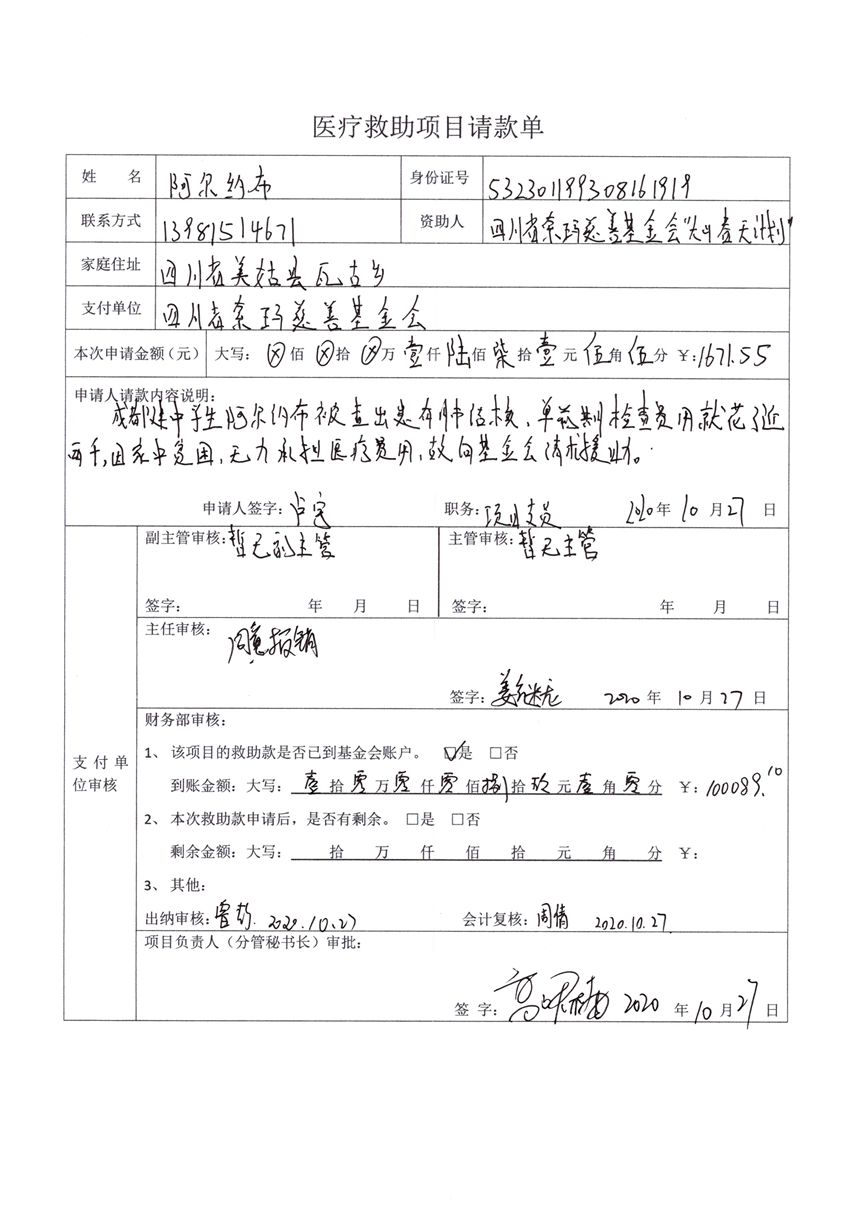 医疗救助项目请款单
姓 名 阿尔约布 身份证号 532301199308161919
联系方式 13981514671 资助人 四川省索玛慈善基金会“火春天计划”
家庭住址 四川省美姑县瓦古乡
支付单位 四川省索玛慈善基金会
本次申请金额（元） 大写： ⊗佰 ⊗拾 ⊗万 壹仟 陆佰 柒拾 壹元 伍角 伍分 ￥：1671.55
申请人请款内容说明：
学生阿尔约布被查出患有肺结核，单前期检查费用就花了近
两千，因家中贫困，无力承担医疗费用，故向基金会请求援助。
申请人签字：卢宇 职务：项目专员 2020年 10 月27 日
副主管审核：暂无副主管 主管审核：暂无主管
签字： 年 月 日 签字： 年 月 日
主任审核： 同意报销
签字： 2020 年 10 月 27 日
支付单位审核
财务部审核：
1、 该项目的救助款是否已到基金会账户。 ☑是 □否
到账金额：大写： 壹拾 零万 零仟 零佰 捌拾 玖元 壹角 零分 ￥：100089.10
2、 本次救助款申请后，是否有剩余。 □是 □否
剩余金额：大写： 拾 万 仟 佰 拾 元 角 分 ￥：
3、 其他：
出纳审核： 2020.10.27 会计复核：周倩 2020.10.27
项目负责人（分管秘书长）审批：
签 字： 2020 年 10 月 27 日